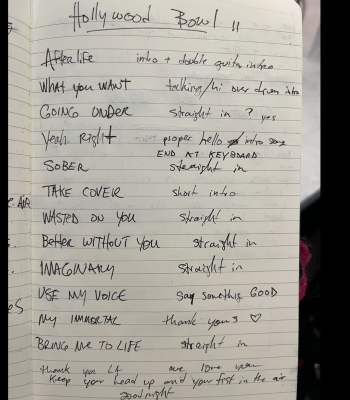 Hollywood Bowl !!
Afterlife intro + double guitar intro
WHAT YOU WANT talking/hi over drum intro
GOING UNDER straight in ? yes
Yeah Right proper hello intro song
END AT KEYBOARD
SOBER straight in
TAKE COVER short intro
WASTED ON YOU straight in
Better WITHOUT YOU straight in
IMAGINARY straight in
USE MY VOICE say something GOOD
MY IMMORTAL thank yous ♡
BRING ME TO LIFE straight in
thank you LA we love you
keep your head up and your fist in the air
goodnight